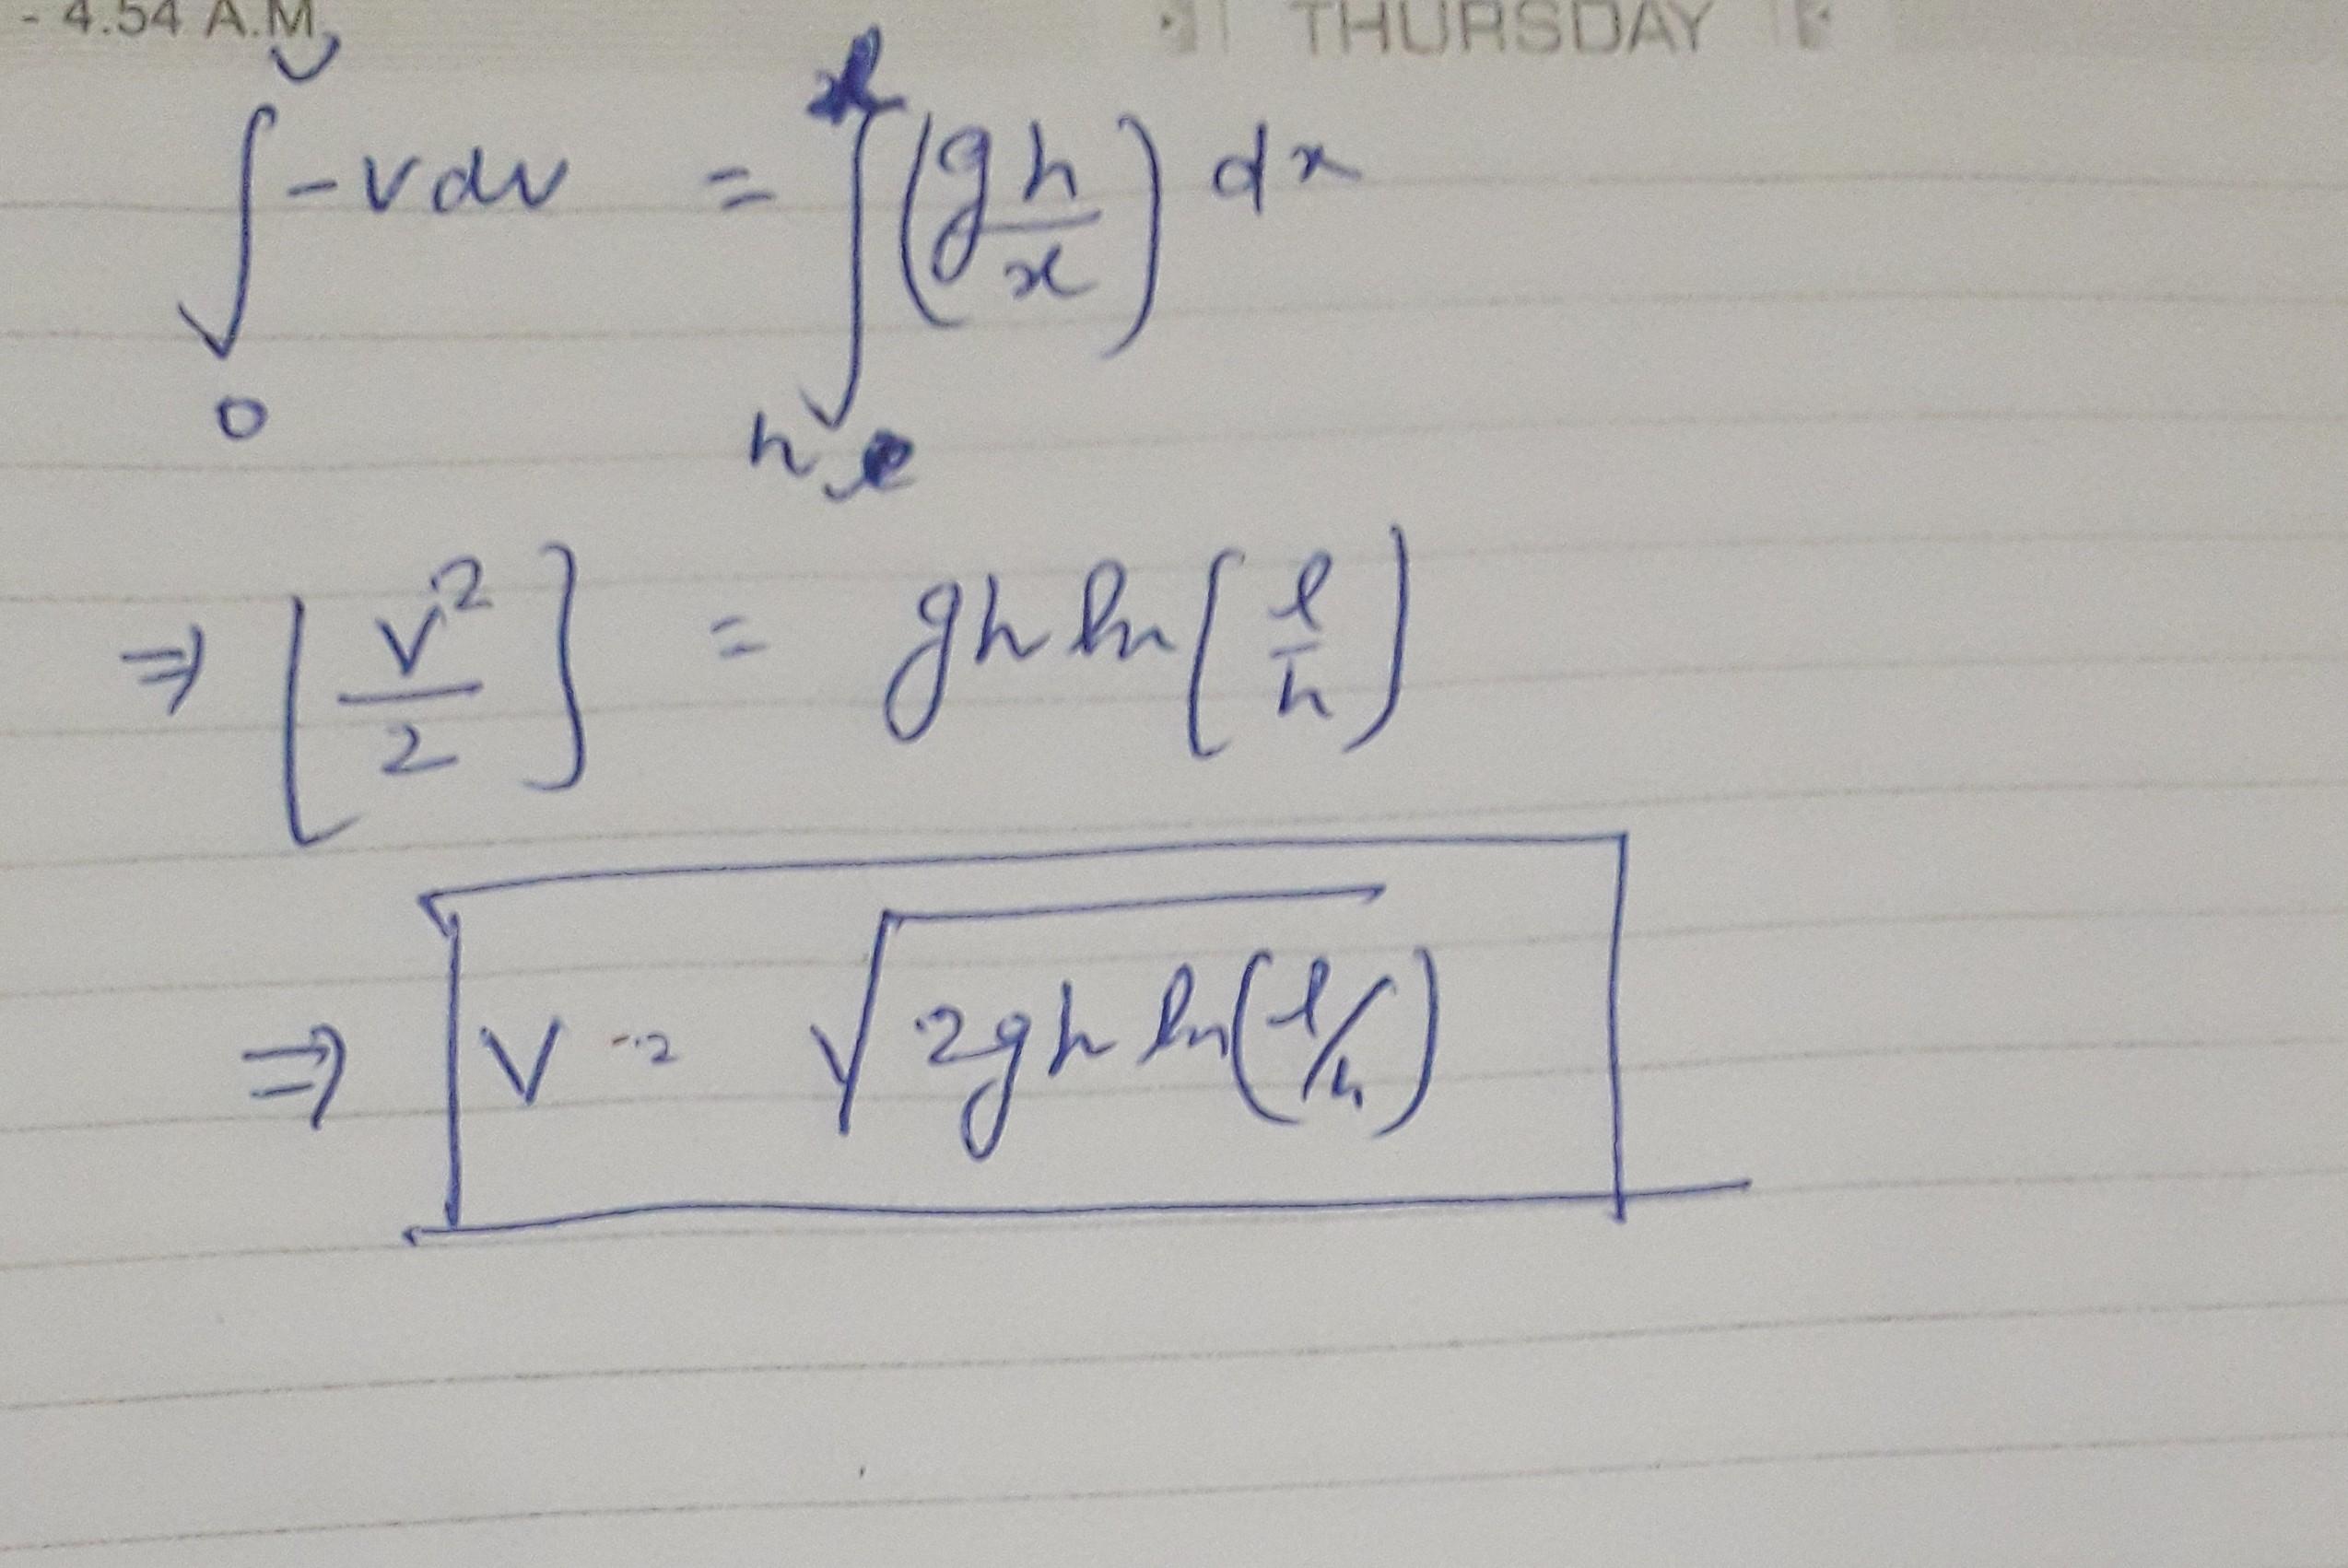 - 4.54 A.M. THURSDAY
∫₀ᵛ -v dv = ∫ₕ (gh/x) dx
⇒ [v²/2] = gh ln(l/h)
⇒ v = √(2gh ln(l/h))